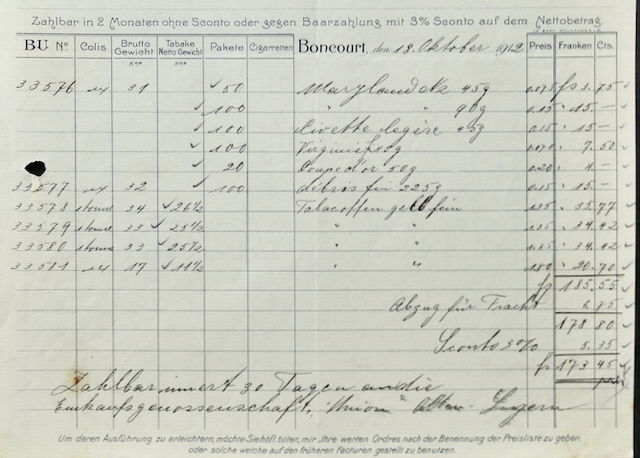 Zahlbar in 2 Monaten ohne Sconto oder gegen Baarzahlung mit 3% Sconto auf dem Nettobetrag.
BU No Colis Brutto Gewicht Kos Tabake Netto Gewicht Kos Pakete Cigaretten Boncourt, den 18. Oktober 1912 Preis Franken Cts.
33576 31 50 Maryland 45g 0.075 fs 3.75
100 " " 90g 0.15 " 15.—
100 Civette légère 45g 0.15 " 15.—
100 0.070 " 7.50
20 Coupe d'or 50g 0.20 " 4.—
33577 32 100 débris fin 225g 0.15 " 15.—
33578 34 26½ gelb fein 135 " 35.77
33579 33 25½ " " 135 " 34.42
33580 33 25½ " " 135 " 34.42
33581 17 11½ " " 180 " 20.70
fs 185.55
Abzug für Fracht 6.75
178.80
Sconto 3% 5.35
fs 173.45
Zahlbar innert 30 Tagen an die
Einkaufsgenossenschaft "Union" Luzern
Um deren Ausführung zu erleichtern, möchte Sie höfl. bitten, mir Ihre werten Ordres nach der Benennung der Preisliste zu geben,
oder solche welche auf den früheren Facturen gestellt zu benutzen.